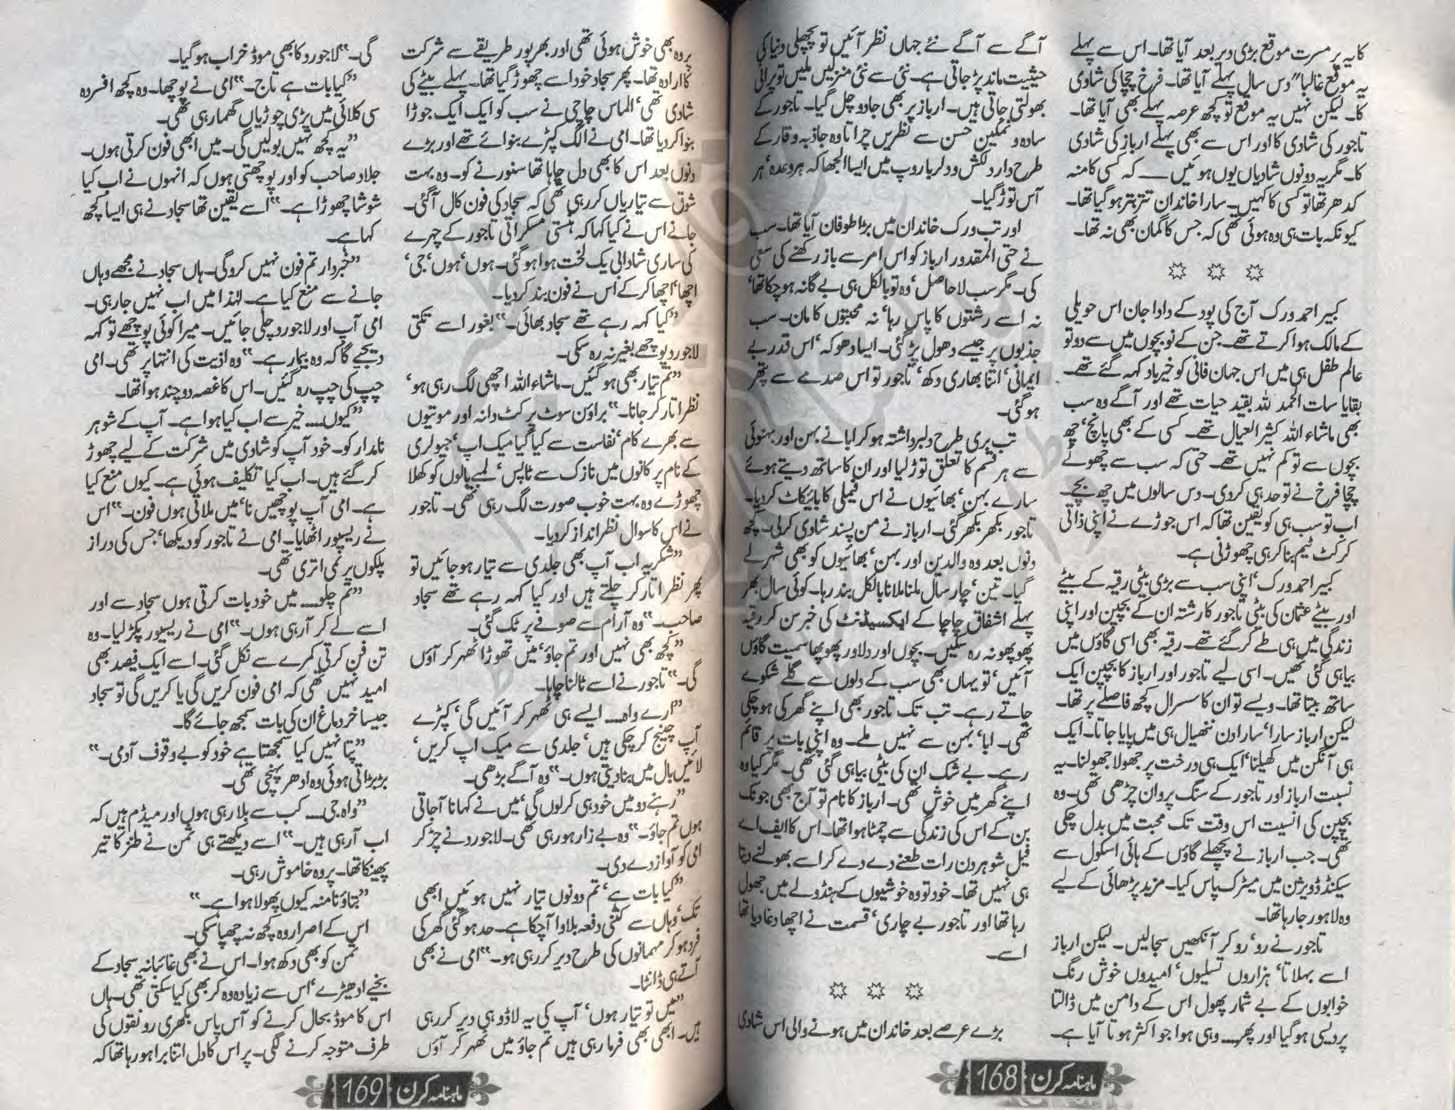 کا یہ پر مسرت موقع بڑی دیر بعد آیا تھا۔ اس سے پہلے
یہ موقع غالبا" دس سال پہلے آیا تھا۔ فرخ چچا کی شادی
کا۔ لیکن نہیں یہ موقع تو کچھ عرصہ پہلے بھی آیا تھا۔
تاجور کی شادی کا اور اس سے بھی پہلے ارباز کی شادی
کا۔ مگر یہ دونوں شادیاں یوں ہوئیں ۔۔۔ کہ کسی کا منہ
کدھر تھا تو کسی کا کہیں۔ سارا خاندان تتر بتر ہو گیا تھا۔
کیونکہ بات ہی وہ ہوئی تھی کہ جس کا گمان بھی نہ تھا۔
☼ ☼ ☼
کبیر احمد ورک آج کی پود کے دادا جان اس حویلی
کے مالک ہوا کرتے تھے۔ جن کے نو بچوں میں سے دو تو
عالم طفل ہی میں اس جہان فانی کو خیرباد کہہ گئے تھے۔
بقایا سات الحمد للہ بقید حیات تھے اور آگے وہ سب
بھی ماشاء اللہ کثیر العیال تھے۔ کسی کے بھی پانچ' چھ
بچوں سے تو کم نہیں تھے۔ حتی کہ سب سے چھوٹے
چچا فرخ نے تو حد ہی کر دی۔ دس سالوں میں چھ بچے۔
اب تو سب ہی کو یقین تھا کہ اس جوڑے نے اپنی ذاتی
کرکٹ ٹیم بنا کر ہی چھوڑنی ہے۔
کبیر احمد ورک' اپنی سب سے بڑی بیٹی رقیہ کے بیٹے
اور بیٹے عثمان کی بیٹی تاجور کا رشتہ ان کے بچپن اور اپنی
زندگی میں ہی طے کر گئے تھے۔ رقیہ بھی اسی گاؤں میں
بیاہی گئی تھیں۔ اسی لیے تاجور اور ارباز کا بچپن ایک
ساتھ بیتا تھا۔ ویسے تو ان کا سسرال کچھ فاصلے پر تھا۔
لیکن ارباز سارا' سارا دن ننھیال ہی میں پایا جاتا۔ ایک
ہی آنگن میں کھیلنا' ایک ہی درخت پر جھولا جھولنا۔ یہ
نسبت ارباز اور تاجور کے سنگ پروان چڑھی تھی۔ وہ
بچپن کی انسیت اس وقت تک محبت میں بدل چکی
تھی۔ جب ارباز نے پچھلے گاؤں کے ہائی اسکول سے
سیکنڈ ڈویژن میں میٹرک پاس کیا۔ مزید پڑھائی کے لیے
وہ لاہور جا رہا تھا۔
تاجور نے رو' رو کر آنکھیں سجا لیں۔ لیکن ارباز
اسے بہلاتا' ہزاروں تسلیوں' امیدوں خوش رنگ
خوابوں کے بے شمار پھول اس کے دامن میں ڈالتا
پردیسی ہو گیا اور پھر۔۔۔ وہی ہوا جو اکثر ہوتا آیا ہے۔
آگے سے آگے نئے جہاں نظر آئیں تو پچھلی دنیا کی
حیثیت ماند پڑ جاتی ہے۔ نئی سے نئی منزلیں ملیں تو پرانی
بھولتی جاتی ہیں۔ ارباز پر بھی جادو چل گیا۔ تاجور کے
سادہ و نمکین حسن سے نظریں چراتا وہ جاذب و قار کے
طرح دار دلکش و دلربا روپ میں ایسا الجھا کہ ہر وعدہ' ہر
آس توڑ گیا۔
اور تب ورک خاندان میں بڑا طوفان آیا تھا۔ سب
نے حتی المقدور ارباز کو اس امر سے باز رکھنے کی سعی
کی۔ مگر سب لا حاصل' وہ تو بالکل ہی بے گانہ ہو چکا تھا'
نہ اسے رشتوں کا پاس رہا' نہ محبتوں کا مان۔ سب
جذبوں پر جیسے دھول پڑ گئی۔ ایسا دھوکہ' اس قدر بے
ایمانی' اتنا بھاری دکھ' تاجور تو اس صدمے سے پتھر
ہو گئی۔
تب بری طرح دلبرداشتہ ہو کر ابا نے بہن اور بہنوئی
سے ہر قسم کا تعلق توڑ لیا اور ان کا ساتھ دیتے ہوئے
سارے بہن' بھائیوں نے اس فیملی کا بائیکاٹ کر دیا۔
تاجور بکھر بکھر گئی۔ ارباز نے من پسند شادی کر لی۔ کچھ
دنوں بعد وہ والدین اور بہن' بھائیوں کو بھی شہر لے
گیا۔ تین' چار سال ملنا ملانا بالکل بند رہا۔ کوئی سال بھر
پہلے اشفاق چاچا کے ایکسیڈنٹ کی خبر سن کر رقیہ
پھوپھو نہ رہ سکیں۔ بچوں اور دلاور پھوپھا سمیت گاؤں
آئیں' تو یہاں بھی سب کے دلوں سے گلے شکوے
جاتے رہے۔ تب تک تاجور بھی اپنے گھر کی ہو چکی
تھی۔ ابا' بہن سے نہیں ملے۔ وہ اپنی بات پر قائم
رہے۔ بے شک ان کی بیٹی بیاہی گئی تھی۔ مگر کیا وہ
اپنے گھر میں خوش تھی۔ ارباز کا نام تو آج بھی جونک
بن کے اس کی زندگی سے چمٹا ہوا تھا۔ اس کا ایف اے
فیل شوہر دن رات طعنے دے دے کر اسے بھولنے دیتا
ہی نہیں تھا۔ خود تو وہ خوشیوں کے ہنڈولے میں جھول
رہا تھا اور تاجور بے چاری' قسمت نے اچھا دغا دیا تھا
اسے۔
☼ ☼ ☼
بڑے عرصے بعد خاندان میں ہونے والی اس شادی
ماہنامہ کرن 168
پر وہ بھی خوش ہوئی تھی اور بھرپور طریقے سے شرکت
کا ارادہ تھا۔ پھر سجاد خود اسے چھوڑ گیا تھا۔ پہلے بیٹے کی
شادی تھی' الماس چاچی نے سب کو ایک ایک جوڑا
بنوا کر دیا تھا۔ امی نے الگ کپڑے بنوائے تھے اور بڑے
دنوں بعد اس کا بھی دل چاہا تھا سنورنے کو۔ وہ بہت
شوق سے تیاریاں کر رہی تھی کہ سجاد کی فون کال آگئی۔
جانے اس نے کیا کہا کہ ہنستی مسکراتی تاجور کے چہرے
کی ساری شادابی یک لخت ہوا ہو گئی۔ ہوں' ہوں' جی'
اچھا' اچھا کر کے اس نے فون بند کر دیا۔
"کیا کہہ رہے تھے سجاد بھائی۔" بغور اسے تکتی
لاجورد پوچھے بغیر نہ رہ سکی۔
"تم تیار بھی ہو گئیں۔ ماشاء اللہ اچھی لگ رہی ہو'
نظر اتار کر جانا۔" براؤن سوٹ پر کٹ دانہ اور موتیوں
سے بھرے کام' نفاست سے کیا گیا میک اپ' جیولری
کے نام پر کانوں میں نازک سے ٹاپس' لمبے بالوں کو کھلا
چھوڑے وہ بہت خوب صورت لگ رہی تھی۔ تاجور
نے اس کا سوال نظر انداز کر دیا۔
"شکریہ اب آپ بھی جلدی سے تیار ہو جائیں تو
پھر نظر اتار کر چلتے ہیں اور کیا کہہ رہے تھے سجاد
صاحب۔" وہ آرام سے صوفے پر ٹک گئی۔
"کچھ بھی نہیں اور تم جاؤ' میں تھوڑا ٹھہر کر آؤں
گی۔" تاجور نے اسے ٹالنا چاہا۔
"ارے واہ۔۔۔ ایسے ہی ٹھہر کر آئیں گی' کپڑے
آپ چینج کر چکی ہیں' جلدی سے میک اپ کریں'
لائیں بال میں بنا دیتی ہوں۔" وہ آگے بڑھی۔
"رہنے دو میں خود ہی کر لوں گی' میں نے کہا نا آ جاتی
ہوں تم جاؤ۔" وہ بے زار ہو رہی تھی۔ لاجورد نے چڑ کر
امی کو آواز دے دی۔
"کیا بات ہے' تم دونوں تیار نہیں ہوئیں ابھی
تک' وہاں سے کتنی دفعہ بلاوا آ چکا ہے۔ حد ہو گئی گھر کی
فرد ہو کر مہمانوں کی طرح دیر کر رہی ہو۔" امی نے بھی
آتے ہی ڈانٹا۔
"میں تو تیار ہوں' آپ کی یہ لاڈو ہی دیر کر رہی
ہیں۔ ابھی بھی فرما رہی ہیں تم جاؤ میں ٹھہر کر آؤں
گی۔" لاجورد کا بھی موڈ خراب ہو گیا۔
"کیا بات ہے تاج۔" امی نے پوچھا۔ وہ کچھ افسردہ
سی کلائی میں پڑی چوڑیاں گھما رہی تھی۔
"یہ کچھ نہیں بولیں گی۔ میں ابھی فون کرتی ہوں۔
جلاد صاحب کو اور پوچھتی ہوں کہ انہوں نے اب کیا
شوشا چھوڑا ہے۔" اسے یقین تھا سجاد نے ہی ایسا کچھ
کہا ہے۔
"خبردار تم فون نہیں کرو گی۔ ہاں سجاد نے مجھے وہاں
جانے سے منع کیا ہے۔ لہٰذا میں اب نہیں جا رہی۔
امی آپ اور لاجورد چلی جائیں۔ میرا کوئی پوچھے تو کہہ
دیجیے گا کہ وہ بیمار ہے۔" وہ اذیت کی انتہا پر تھی۔ امی
چپ کی چپ رہ گئیں۔ اس کا غصہ دو چند ہوا تھا۔
"کیوں۔۔۔ خیر سے اب کیا ہوا ہے۔ آپ کے شوہر
نامدار کو۔ خود آپ کو شادی میں شرکت کے لیے چھوڑ
کر گئے ہیں۔ اب کیا تکلیف ہوئی ہے۔ کیوں منع کیا
ہے۔ امی آپ پوچھیں نا' میں ملاتی ہوں فون۔" اس
نے ریسیور اٹھایا۔ امی نے تاجور کو دیکھا' جس کی دراز
پلکوں پر نمی اتری تھی۔
"تم چلو۔۔۔ میں خود بات کرتی ہوں سجاد سے اور
اسے لے کر آ رہی ہوں۔" امی نے ریسیور پکڑ لیا۔ وہ
تن فن کرتی کمرے سے نکل گئی۔ اسے ایک فیصد بھی
امید نہیں تھی کہ امی فون کریں گی یا کریں گی تو سجاد
جیسا خر دماغ ان کی بات سمجھ جائے گا۔
"پتا نہیں کیا سمجھتا ہے خود کو بے وقوف آدمی۔"
بڑبڑاتی ہوئی وہ ادھر پہنچی تھی۔
"واہ جی۔۔۔ کب سے بلا رہی ہوں اور میڈم ہیں کہ
اب آ رہی ہیں۔" اسے دیکھتے ہی ثمن نے طنز کا تیر
پھینکا تھا۔ پر وہ خاموش رہی۔
"بتاؤ نا منہ کیوں پھولا ہوا ہے۔"
اس کے اصرار وہ کچھ نہ چھپا سکی۔
ثمن کو بھی دکھ ہوا۔ اس نے بھی غائبانہ سجاد کے
بخیے ادھیڑے' اس سے زیادہ وہ کر بھی کیا سکتی تھی۔ ہاں
اس کا موڈ بحال کرنے کو آس پاس بکھری رونقوں کی
طرف متوجہ کرنے لگی۔ پر اس کا دل اتنا برا ہو رہا تھا کہ
ماہنامہ کرن 169